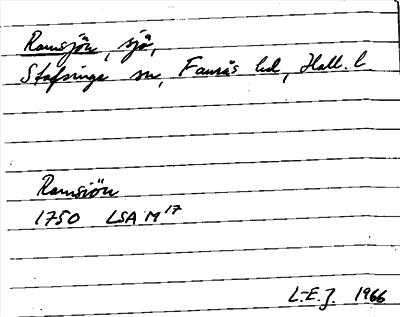 Ramsjön, sjö,
Stafsinge sn, Faurås hd, Hall. l
Ramsiön
1750 LSA M 17
L-E. J. 1966